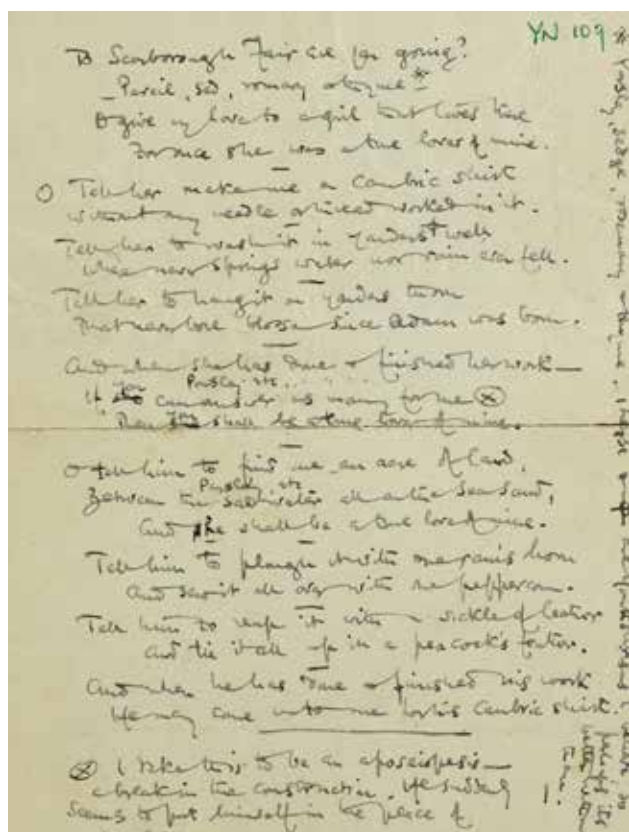 YN 109
To Scarborough Fair are you going?
– Parcil, sed, romary & thyme *
& give my love to a girl that lives there
For once she was a true lover of mine.
O Tell her make me a Cambric shirt
Without any needle or thread worked in it.
Tell her to wash it in yonders well
Where never springs water nor rain ever fell.
Tell her to hang it on yonders thorn
That never bore blossom since Adam was born.
And when she has done & finished her work –
Parsley etc.
If you can answer as many for me ⊗
Then you shall be a true lover of mine.
O tell him to find me an acre of land,
Parsley etc
Between the saltwater and the sea sand,
And he shall be a true lover of mine.
Tell him to plough it with one ram's horn
And sow it all over with one peppercorn.
Tell him to reap it with a sickle of leather
And tie it all up in a peacock's feather.
And when he has done & finished his work
He may come unto me for his Cambric shirt.
⊗ I take this to be an aposeiopesis –
a break in the construction. He suddenly
seems to put himself in the place of
* Parsley, sedge, rosemary & thyme. I
perhaps it's
better